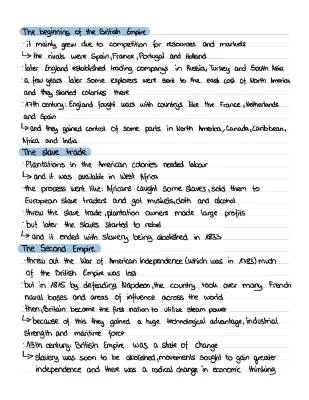 The beginning of the British Empire
· it mainly grew due to competition for resources and markets
↳ the rivals were Spain, France, Portugal and Holland
· later England established trading companys in Russia, Turkey and South Asia
· a few years later some explorers were sent to the east cost of North America
and they started colonies there
· 17th century: England faught wars with countrys like the France, Netherlands
and Spain
↳ and they gained control of some parts in North America, Canada, Caribbean,
Africa and India
The slave trade
· Plantations in the American colonies needed labour
↳ and it was available in West Africa
· the progress went like: Africans caught some slaves, sold them to
European slave traders and got muskets, cloth and alcohol
· threw the slave trade, plantation owners made large profits
· but later the slaves started to rebel
↳ and it ended with slavery being abolished in 1833
The Second Empire
· threw out the War of American Independence (which was in 1783) much
of the British Empire was lost
· but in 1815 by defeating Napoleon, the country took over many French
naval bases and areas of influence across the world
· then, Britain became the first nation to utilize steam power
↳ because of this they gained a huge technological advantage, industrial
strength and maritime force
· 19th century: British Empire was a state of change
↳ slavery was soon to be abolished, movements sought to gain greater
independence and there was a radical change in economic thinking